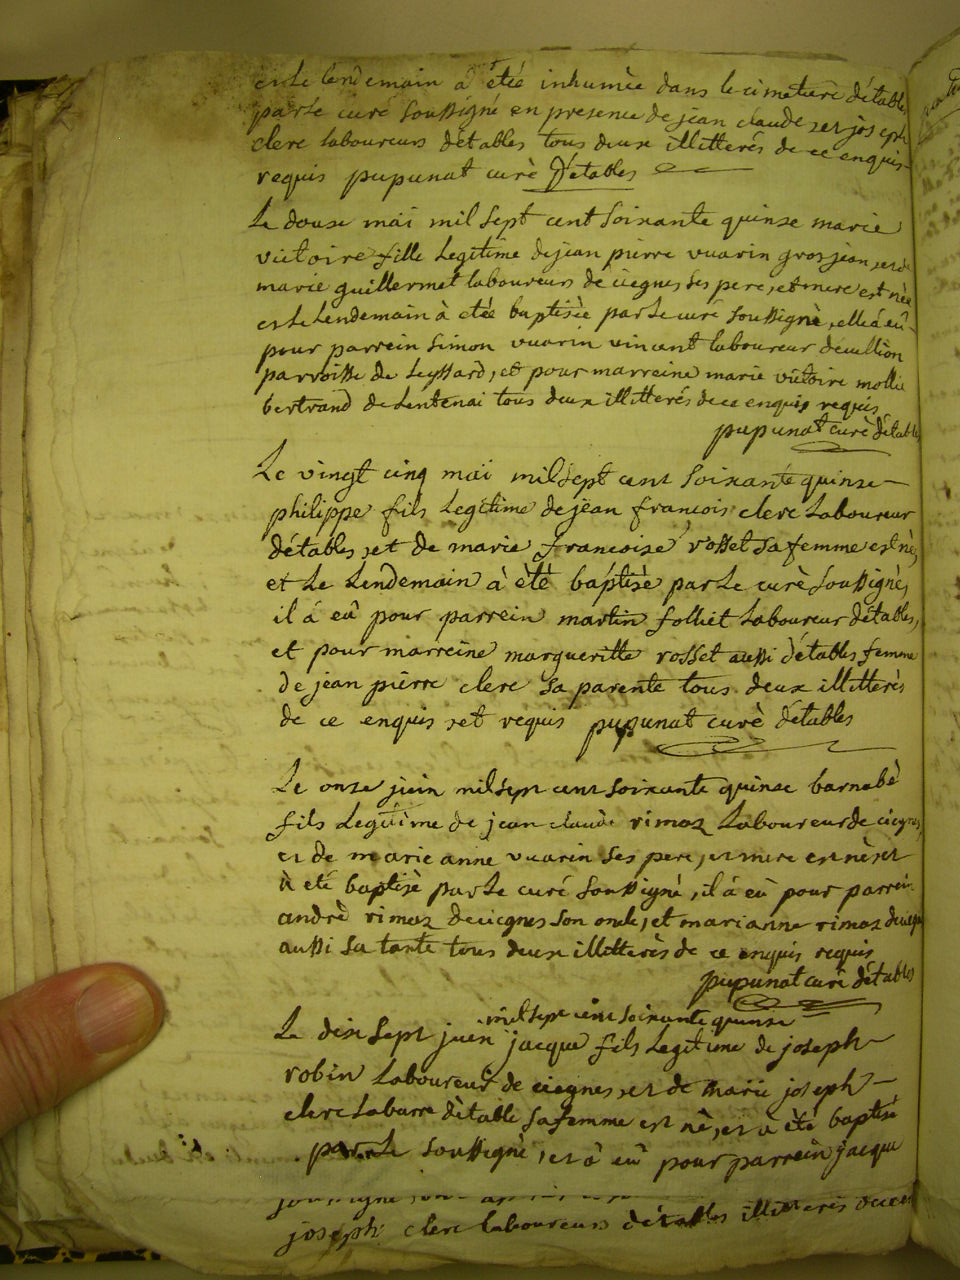 et le lendemain a étéé inhumèe dans le cimetiere détables
par le curé soussigné en presence de jean claude et joseph
clerc laboureurs détables tous deux illitterés de ce enquis
requis pupunat curè Détables
Le douse mai mil sept cent soixante quinse marie
victoire fille Legitime de jean pierre vuarin grosjean, et de
marie guillermet laboureurs de ciegnes ses pere, et mere est née
et le Lendemain à etée baptisèe par le curé soussignè, elle á eû
pour parrein simon vuarin vincent laboureur
parroisse de Leyssard, et pour marreine marie victoire mollie
bertrand de Lentenai tous deux illitterés de ce enquis requis
pupunat curè détables
Le vingt cinq mai mil sept cent soixante quinse
philippe fils Legitime de jean francois clerc Laboureur
détables, et de marie francoise rosset sa femme est nè,
et Le Lendemain à étè baptisè par Le curè soussignè,
il á eû pour parrein martin folliet Laboureur détables,
et pour marreine margueritte rosset aussi détables femme
de jean pierre clerc sa parente tous deux illitterès
de ce enquis, et requis pupunat curè détables
Le onse juin mil sept cent soixante quinse barnabè
fils Legitime de jean claude rimoz Laboureur de ciegnes,
et de marie anne vuarin ses pere, et mere est nè, et
à etè baptisè par Le curé soussigné, il á eû pour parrein
andrè rimoz de ciegnes son oncle, et marianne rimoz de ciegnes
aussi sa tante tous deux illitterès de ce enquis requis
pupunat curé détables
mil sept cent soixante quinse
Le dix sept juin jacque fils Legitime de joseph
robin Laboureur de ciegnes, et de marie joseph
clerc Labarre dètable sa femme est nè, et a étè baptisé
par Le soussigné, et á eû pour parrein jacque
joseph clerc laboureurs détables illitterés de ce